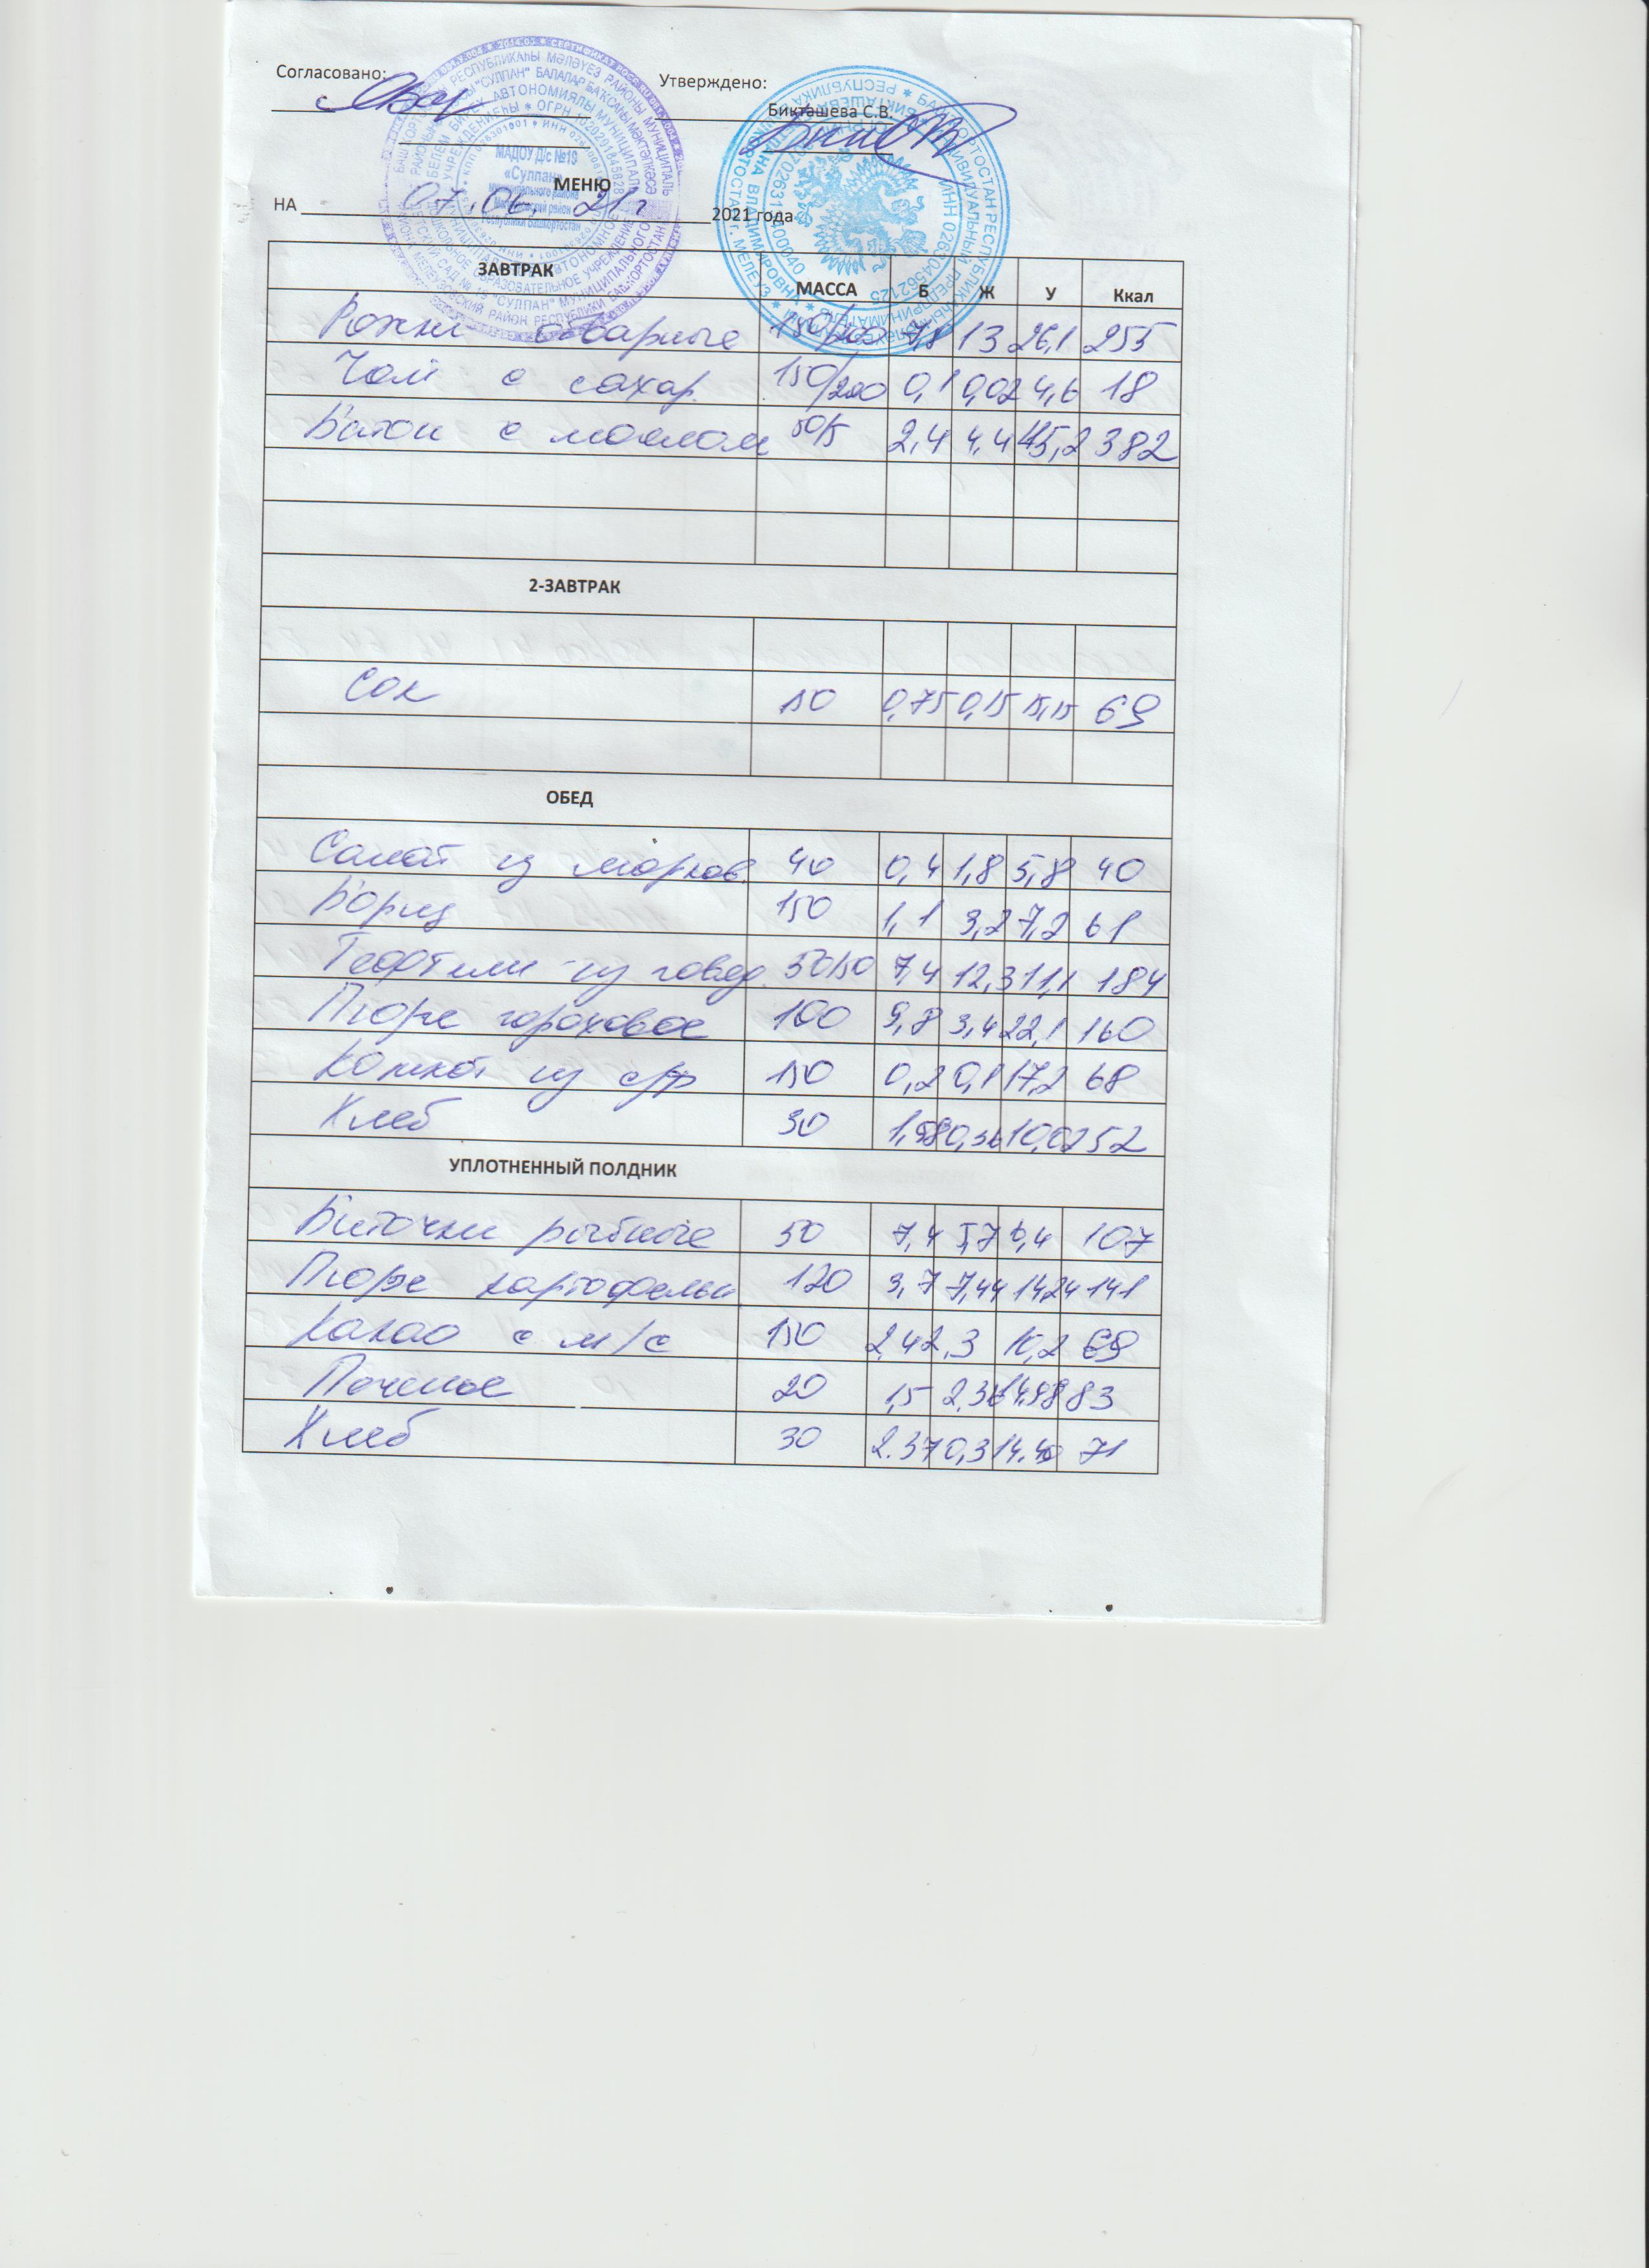 Согласовано:
Утверждено:
Бикташева С.В.
МАДОУ Д/с №19
«Суллпан»
МЕНЮ
НА 07.06. 21г 2021 года
ЗАВТРАК МАССА Б Ж У Ккал
Рожки отварные 150/200 7,8 13 26,1 255
Чай с сахар. 150/200 0,1 0,02 4,6 18
Батон с маслом 50/5 2,4 4,4 45,2 382
2-ЗАВТРАК
Сок 150 0,75 0,15 15,15 69
ОБЕД
Салат из морков. 40 0,4 1,8 5,8 40
Борщ 150 1,1 3,2 7,2 61
Тефтели из говяд. 50/50 7,4 12,3 11,1 184
Пюре гороховое 100 9,8 3,4 22,1 160
Компот из с/ф 150 0,2 0,1 17,2 68
Хлеб 30 1,98 0,36 10,02 52
УПЛОТНЕННЫЙ ПОЛДНИК
Биточки рыбные 50 7,4 5,7 6,4 107
Пюре картофельн 120 3,7 7,44 14,24 141
Какао с м/с 150 2,4 2,3 10,2 69
Печенье 20 1,5 2.36 14,98 83
Хлеб 30 2.37 0,3 14.40 71